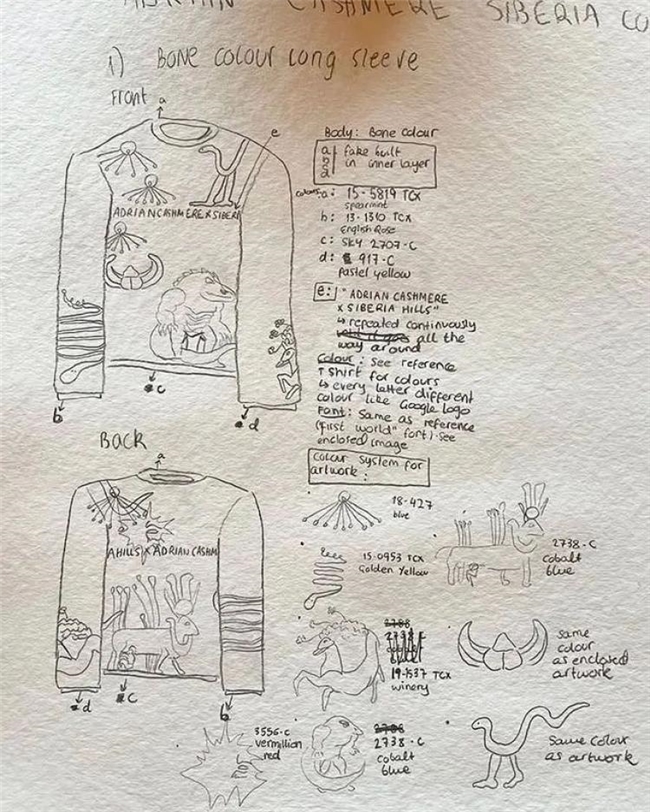 ADRIAN CASHMERE SIBERIA CO
1) BONE COLOUR LONG SLEEVE
Front
a
e
ADRIANCASHMERE X SIBERI
b
c
d
Body: Bone Colour
a
b
d
fake built
in inner layer
colours: a: 15-5819 TCX
spearmint
b: 13-1310 TCX
English Rose
c: SKY 2707-C
d: 917-C
pastel yellow
e: "ADRIAN CASHMERE
X SIBERIA HILLS"
↳ repeated continuously
all the
way around
Colour: See reference
T shirt for colours
↳ every letter different
colour like Google logo
Font: Same as reference
(first world" font). See
enclosed image
Back
a
AHILLS X ADRIAN CASHM
d
c
b
Colour system for
artwork:
18-427
blue
2738-C
cobalt
blue
15-0953 TCX
Golden Yellow
2738
19-1537 TCX
winery
same
colour
as enclosed
artwork
3556-C
vermillion
red
2738-C
cobalt
blue
Same colour
as artwork